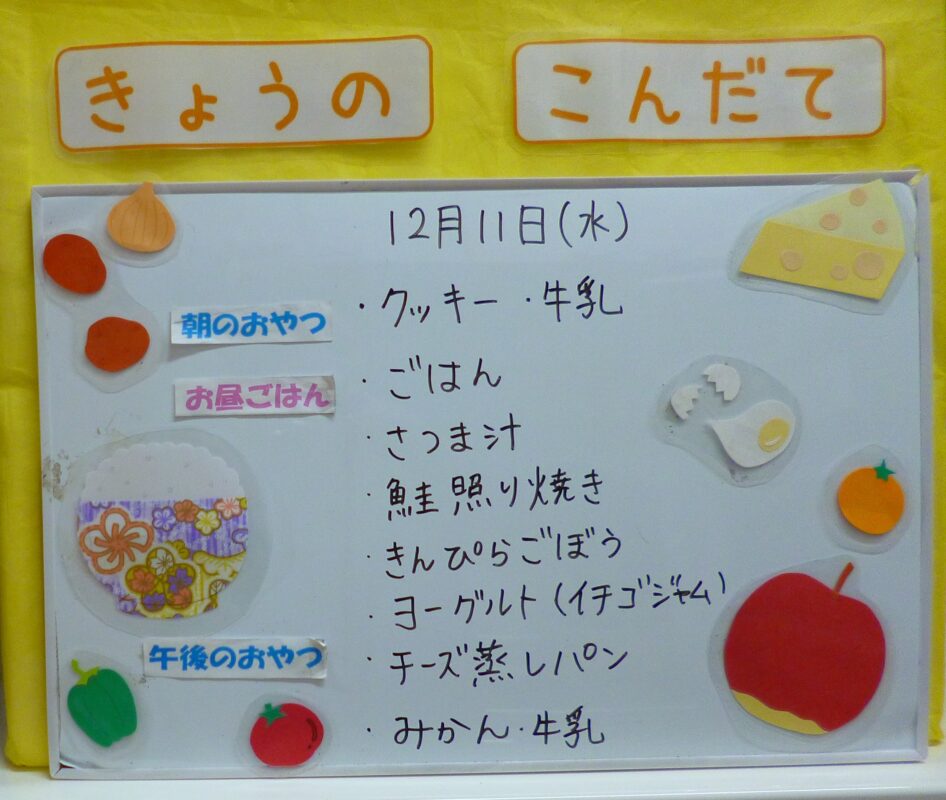 きょうの こんだて
12月11日(水)
朝のおやつ ・クッキー・牛乳
お昼ごはん ・ごはん
・さつま汁
・鮭照り焼き
・きんぴらごぼう
・ヨーグルト(イチゴジャム)
午後のおやつ ・チーズ蒸しパン
・みかん・牛乳